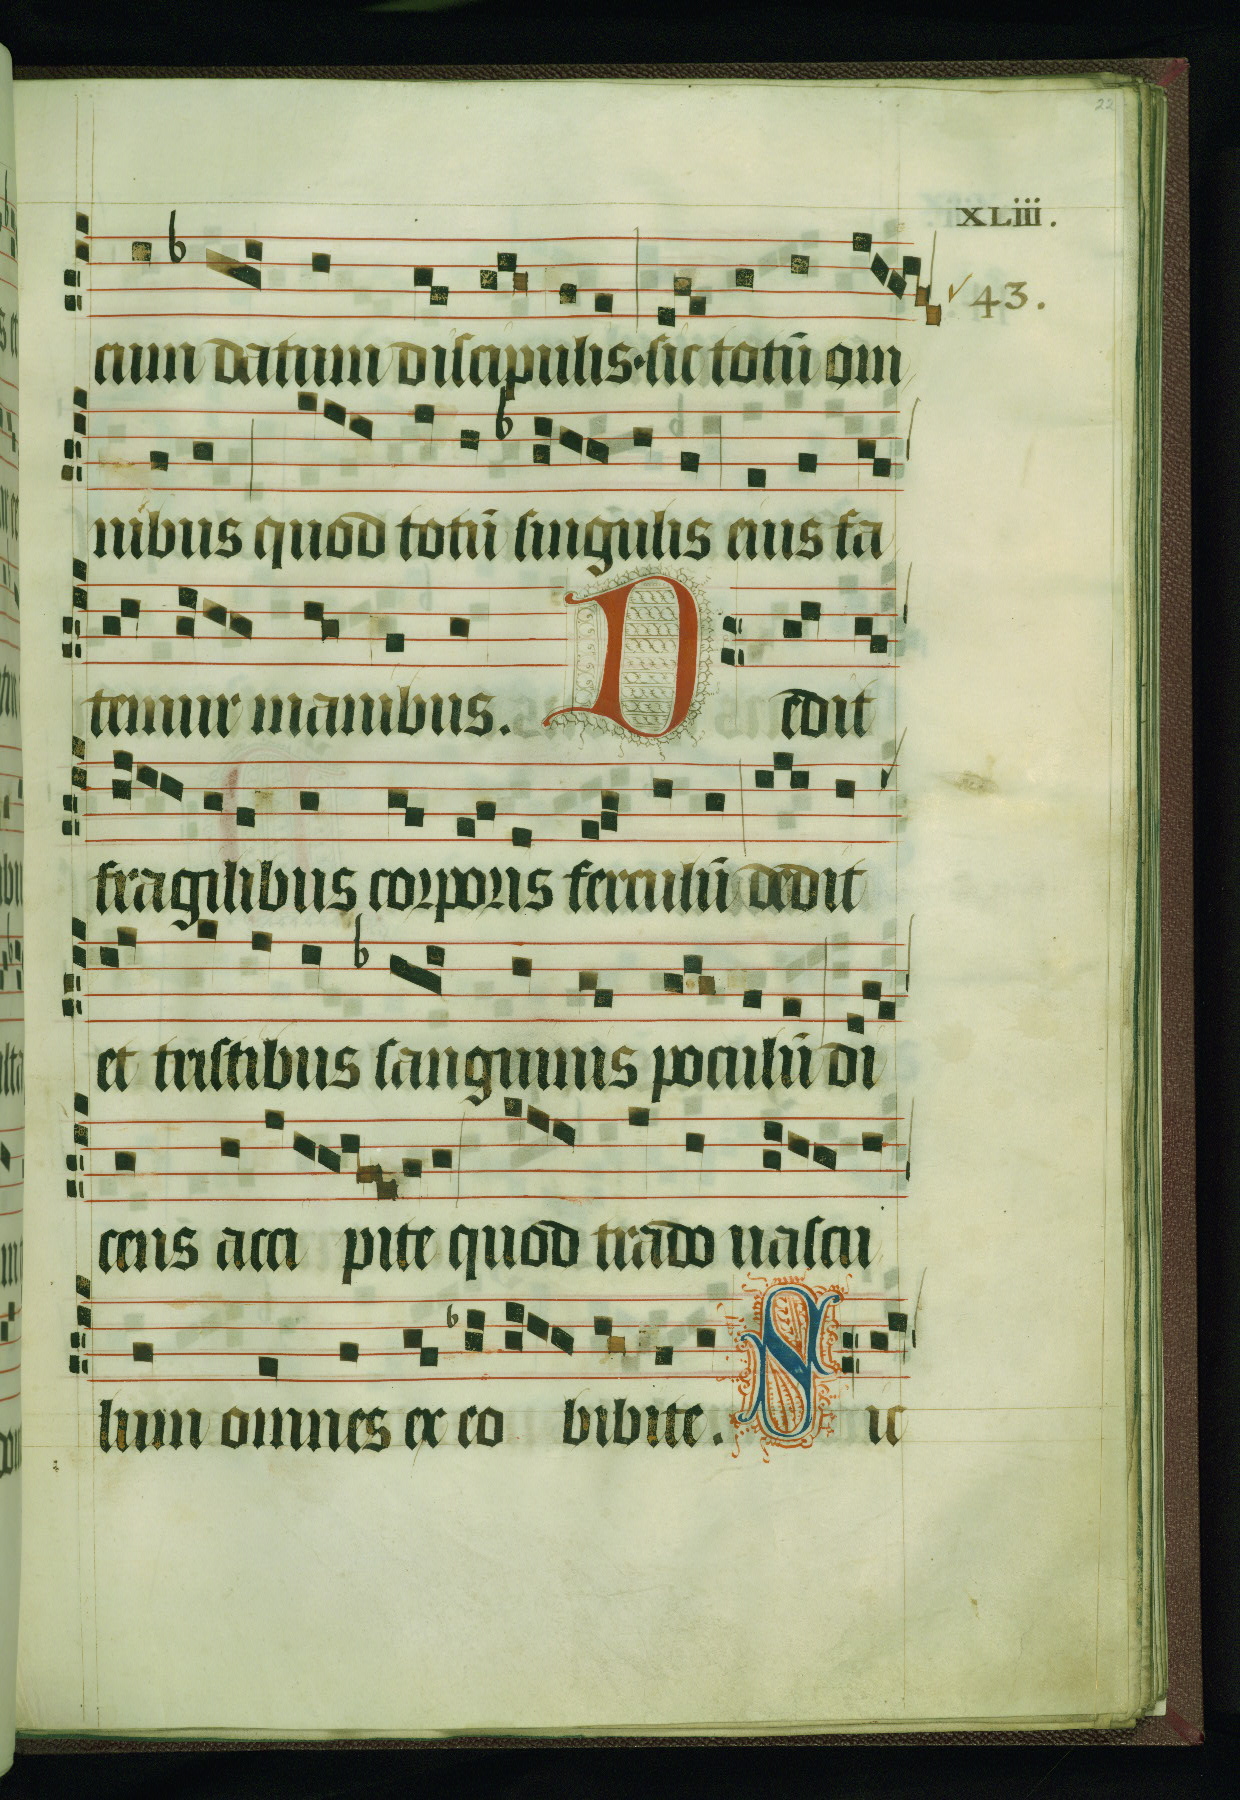 22
XLiii.
43.
cium datum discipulis·sic totū om
nibus quod totū singulis eius fa
temur manibus. Dedit
fragilibus corporis ferculū dedit
et tristibus sanguinis poculū di
cens acci pite quod trado uascu
lum omnes ex eo bibite. Sic